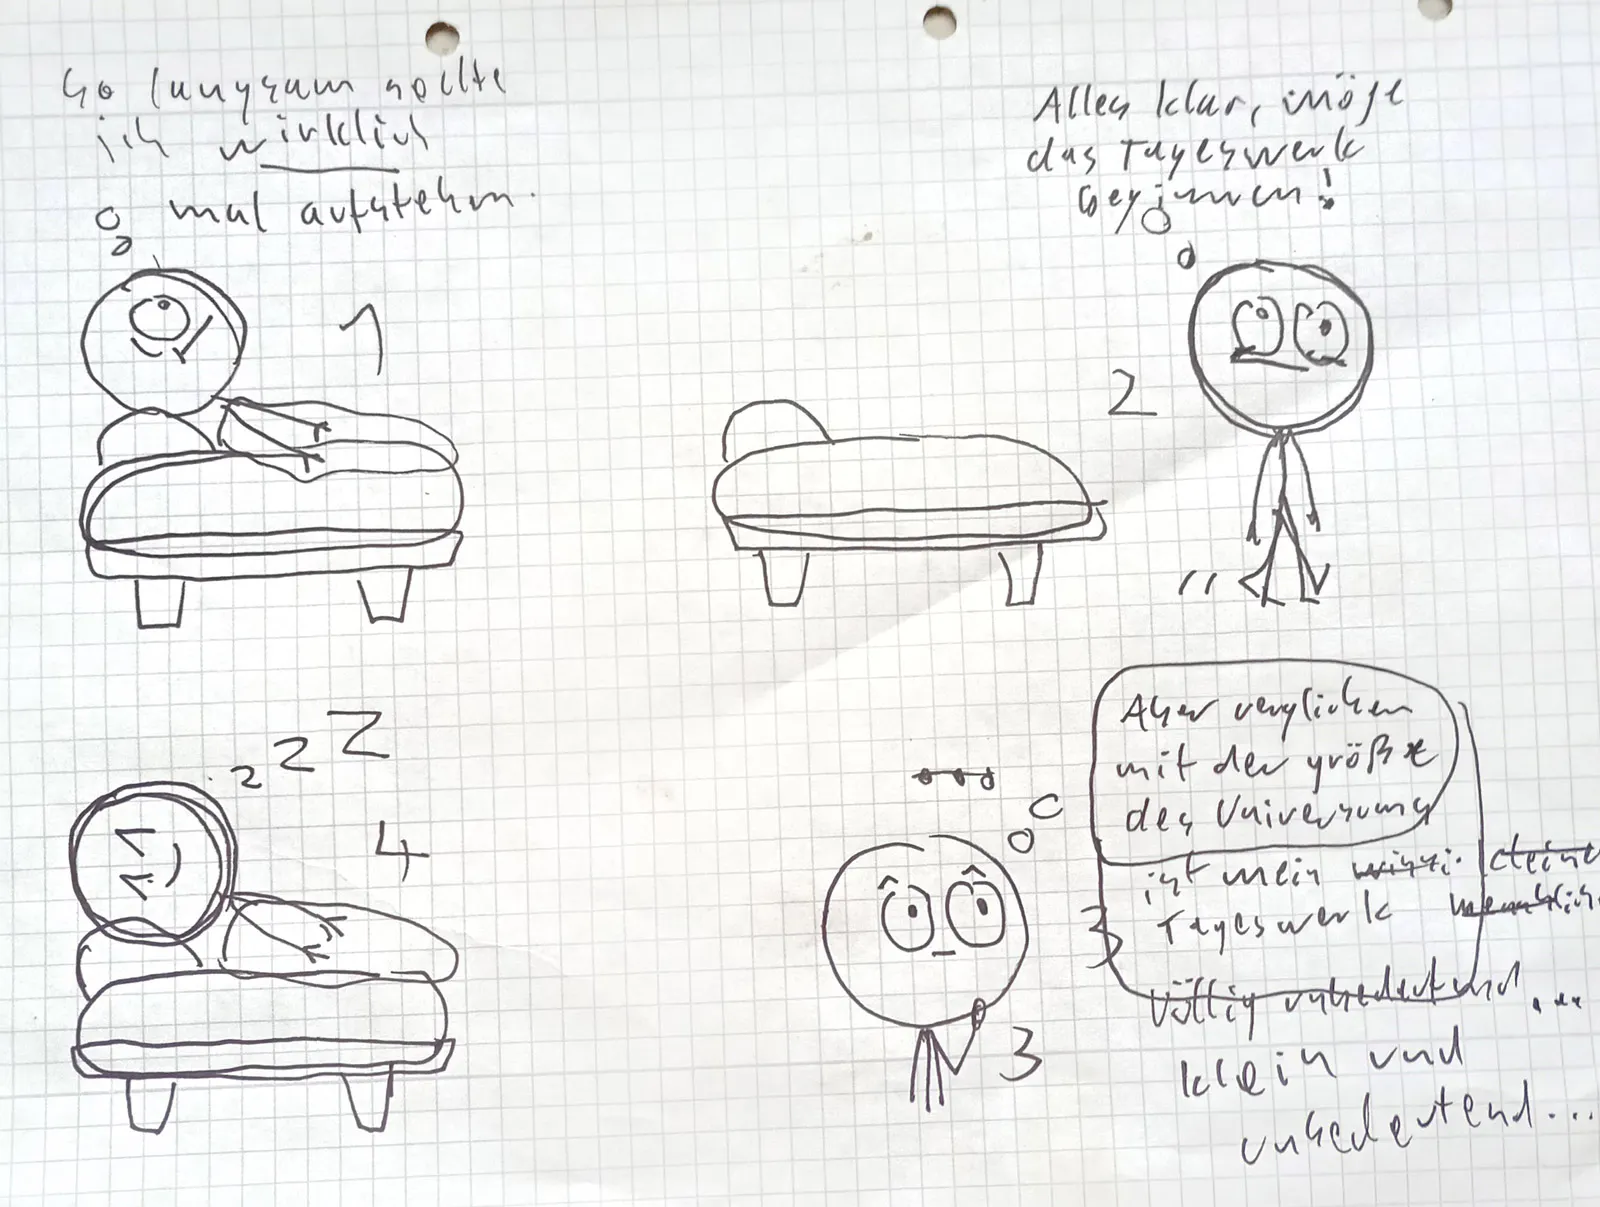 So langsam sollte
ich wirklich
mal aufstehen.
1
Alles klar, möge
das Tageswerk
beginnen!
2
Aber verglichen
mit der größe
des Universums
ist mein winzi. kleine
Tageswerk
völlig unbedeutend...
klein und
unbedeutend...
3
3
z z Z
4